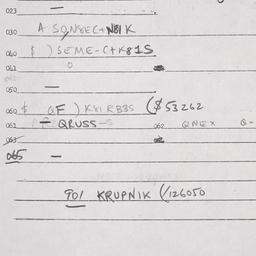 023 —
030 A SQN8EC+N81K
040 $ ) SEME-C+K81S
041 0
050 —
060 $ QF ) K81RB3S ($53262
061 — QRUSS-S 062 QNEX Q-
063
065 —
901 KRUPNIK (/126050